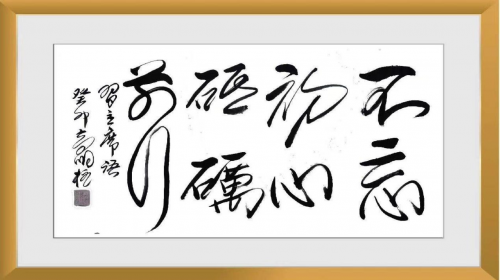 不忘
初心
砥礪
前行
習主席语
癸卯